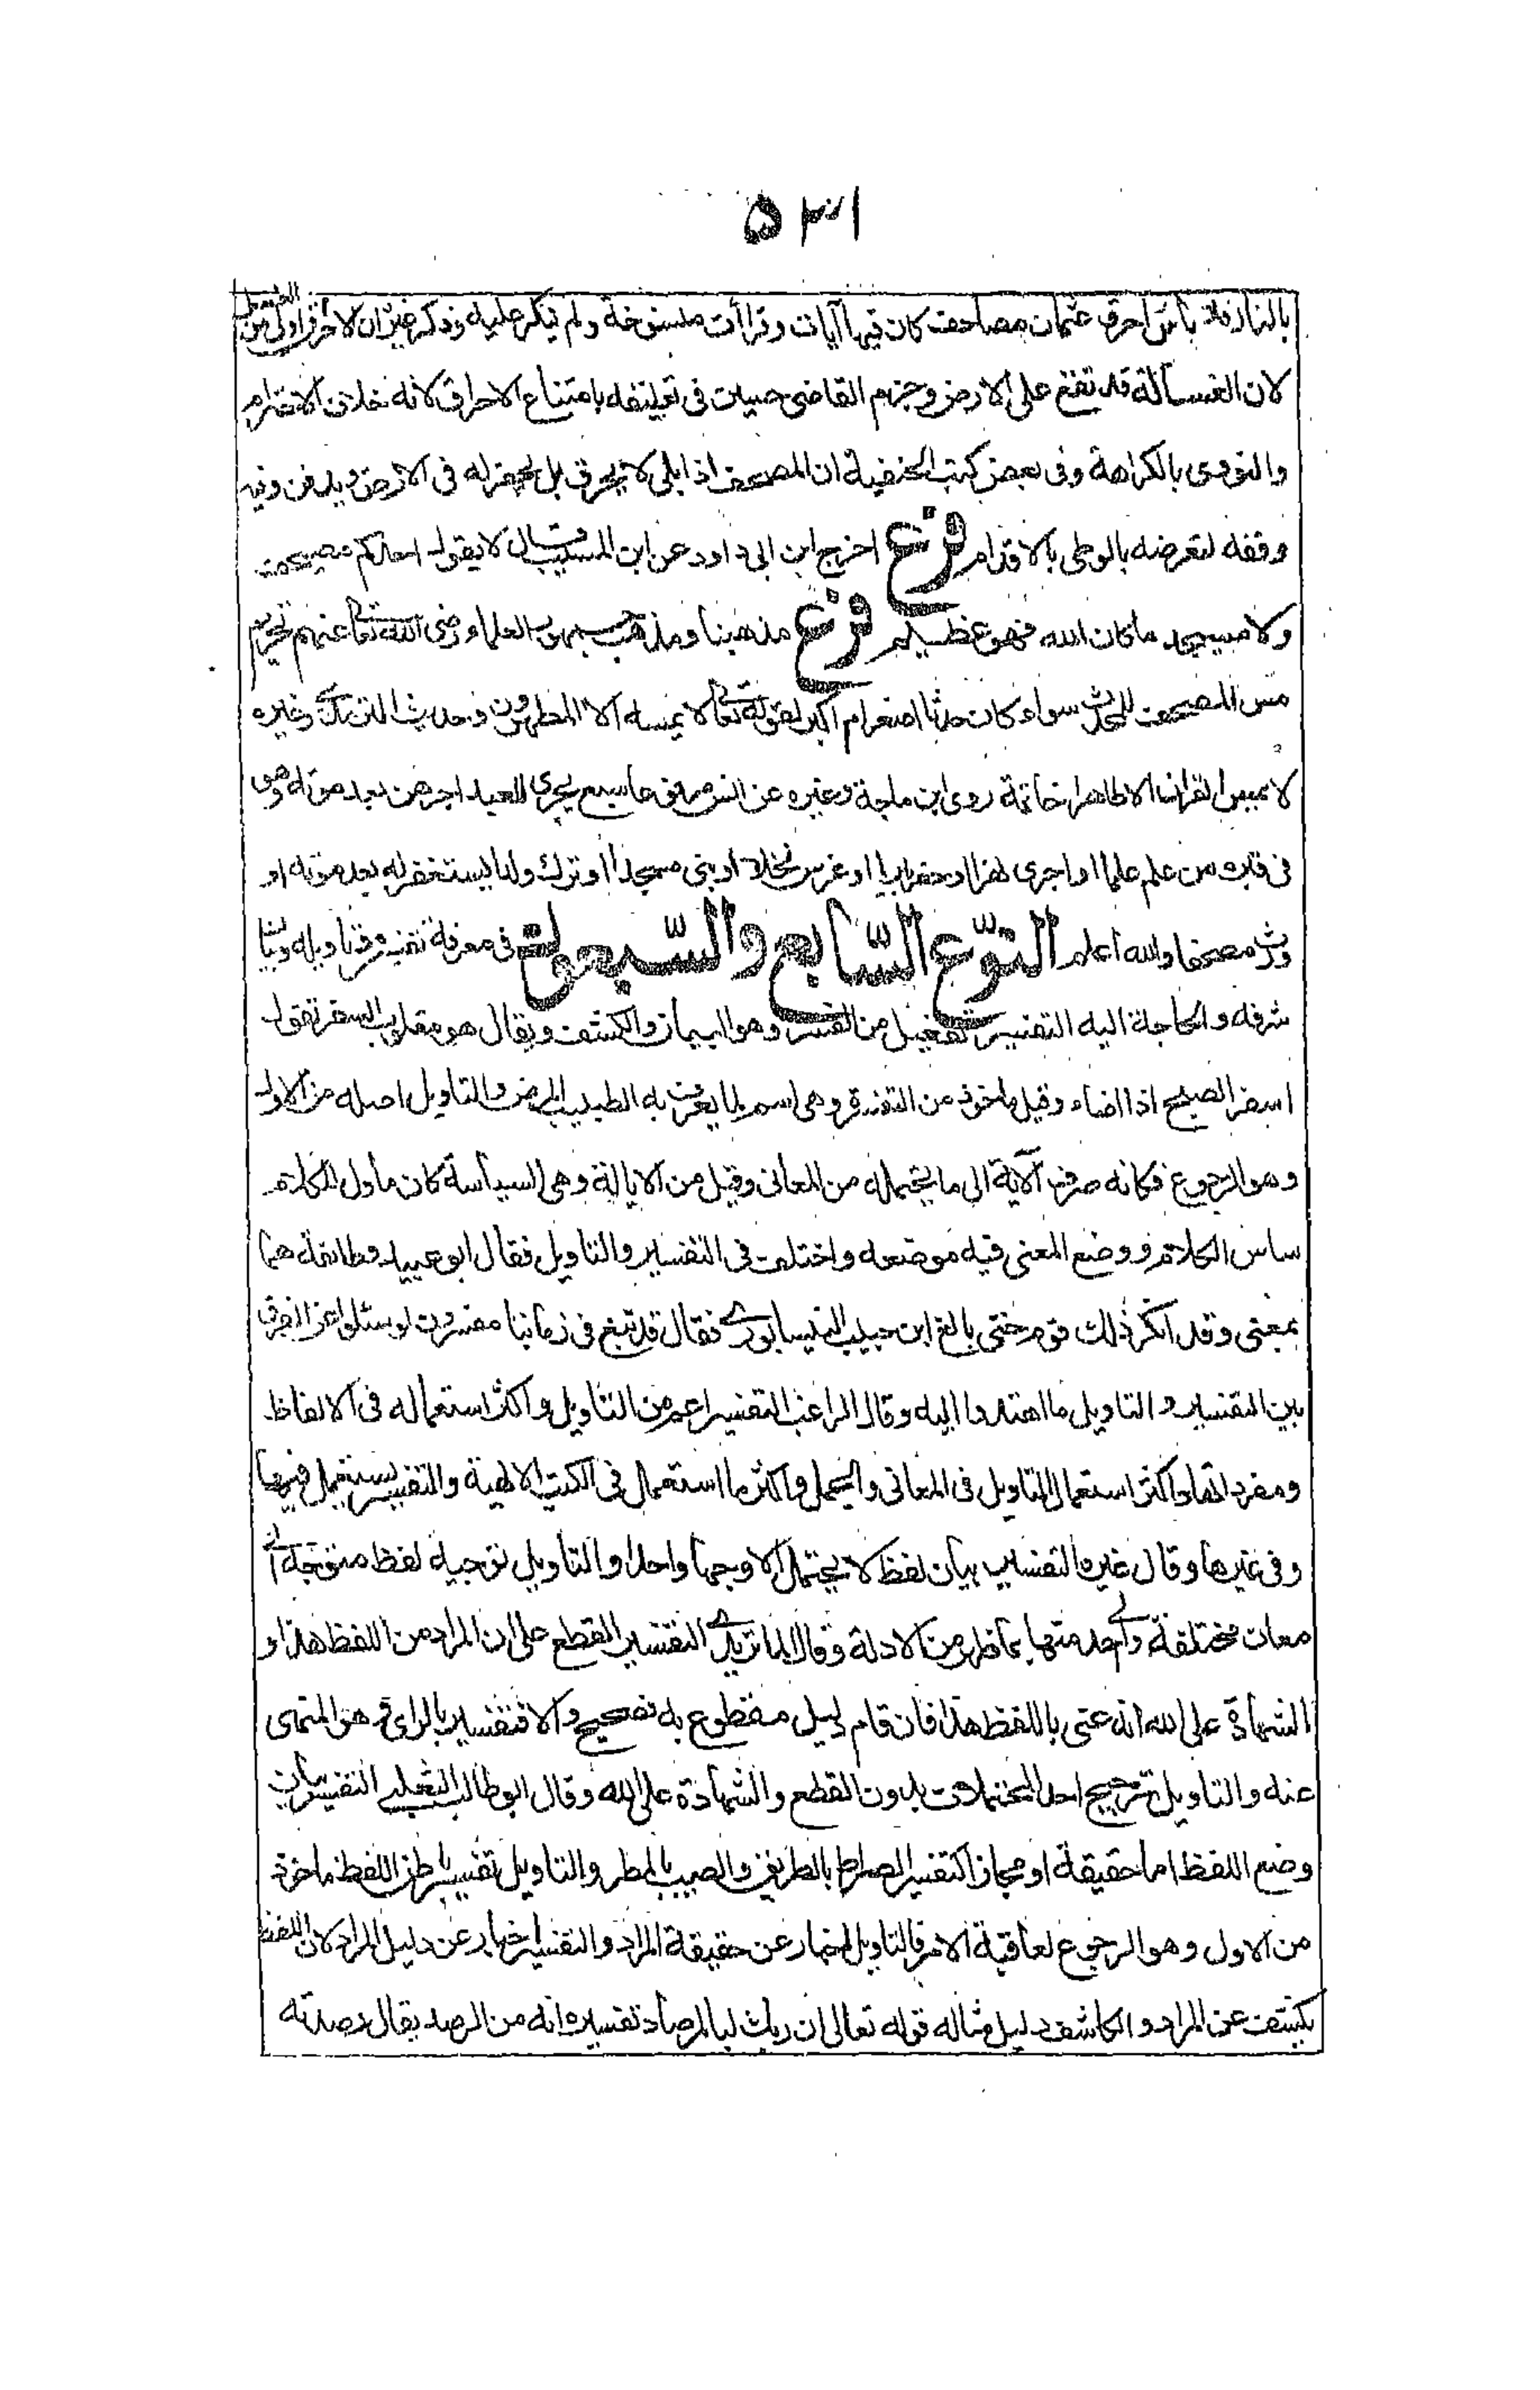 ٥٣١
بالنار فلا بأس احرق عثمان مصاحف كان فيها آيات وقراأت منسوخة ولم ينكر عليه وذكر غيره ان الاحراق اولى من الغسل
لان الغسالة قد تقع على الارض وجزم القاضى حسين فى تعليقه بامتناع الاحراق لانه خلاف الاحترام
والنووى بالكراهة وفى بعض كتب الحنفية ان المصحف اذا بلى لا يحرق بل يحفر له فى الارض ويدفن وفيه
وقفه لتعرضه بالوطى بالاقدام فرع اخرج ابن ابى داود عن ابن المسيب قال لا يقول احدكم مصيحف
ولا مسيجد ما كان لله فهو عظيم فرع مذهبنا ومذهب جمهور العلماء رضى الله تعالى عنهم تحريم
مس المصحف للمحدث سواء كان حدثا اصغر ام اكبر لقوله تعالى لا يمسه الا المطهرون وحديث الترمذى وغيره
لا يمس القران الا طاهر خاتمة روى ابن ماجة وغيره عن انس مرفوعا سبع يجرى للعبد اجرهن بعد موته وهو
فى قبره من علم علما او اجرى نهرا او حفر بيرا او غرس نخلا او بنى مسجدا او ترك ولدا يستغفر له بعد موته او
ورث مصحفا والله اعلم النوع السابع والسبعون فى معرفة تفسيره وتاويله وبيان
شرفه والحاجة اليه التفسير تفعيل من الفسر وهو البيان والكشف ويقال هو مقلوب السفر تقول
اسفر الصبح اذا اضاء وقيل ماخوذ من التفسرة وهى اسم لما يعرف به الطبيب المرض والتاويل اصله من الاول
وهو الرجوع فكانه صرف الآية الى ما يحتمله من المعانى وقيل من الايالة وهى السياسة كان مأول الكلام
ساس الكلام ووضع المعنى فيه موضعه واختلف فى التفسير والتاويل فقال ابو عبيد وطائفة هما
بمعنى وقد انكر ذلك قوم حتى بالغ ابن حبيب النيسابورى فقال قد نبغ فى زماننا مفسرون لو سئلوا عن الفرق
بين التفسير والتاويل ما اهتدوا اليه وقال الراغب التفسير اعم من التاويل واكثر استعماله فى الالفاظ
ومفرداتها واكثر استعمال التاويل فى المعانى والجمل واكثر ما استعمال فى الكتب الالهية والتفسير يستعمل فيها
وفى غيرها وقال غيره التفسير بيان لفظ لا يحتمل الا وجها واحدا والتاويل توجيه لفظ متوجه الى
معان مختلفة الى واحد منها بما ظهر من الادلة وقال الماتريدى التفسير القطع على ان المراد من اللفظ هذا و
الشهادة على الله انه عنى باللفظ هذا فان قام دليل مقطوع به فصحيح والا فتفسير بالراى وهو المنهى
عنه والتاويل ترجيح احد المحتملات بدون القطع والشهادة على الله وقال ابو طالب الثعلبى التفسير بيان
وضع اللفظ اما حقيقة او مجازا كتفسير الصراط بالطريق والصيب بالمطر والتاويل تفسير باطن اللفظ ماخوذ
من الاول وهو الرجوع لعاقبة الامر فالتاويل اخبار عن حقيقة المراد والتفسير اخبار عن دليل المراد لان اللفظ
يكشف عن المراد والكاشف دليل مثاله قوله تعالى ان ربك لبالمرصاد تفسيره انه من الرصد يقال رصدته